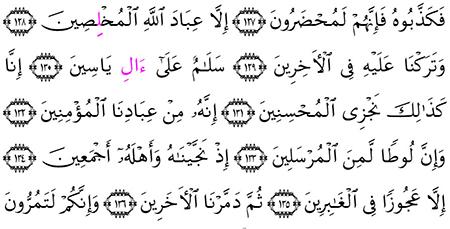 فَكَذَّبُوهُ فَإِنَّهُمْ لَمُحْضَرُونَ ١٢٧ إِلَّا عِبَادَ ٱللَّهِ ٱلْمُخْلِصِينَ ١٢٨
وَتَرَكْنَا عَلَيْهِ فِى ٱلْأَخِرِينَ ١٢٩ سَلَٰمٌ عَلَىٰٓ ءَالِ يَاسِينَ ١٣٠ إِنَّا
كَذَٰلِكَ نَجْزِى ٱلْمُحْسِنِينَ ١٣١ إِنَّهُۥ مِنْ عِبَادِنَا ٱلْمُؤْمِنِينَ ١٣٢
وَإِنَّ لُوطًا لَّمِنَ ٱلْمُرْسَلِينَ ١٣٣ إِذْ نَجَّيْنَٰهُ وَأَهْلَهُۥٓ أَجْمَعِينَ ١٣٤
إِلَّا عَجُوزًا فِى ٱلْغَٰبِرِينَ ١٣٥ ثُمَّ دَمَّرْنَا ٱلْأَخَرِينَ ١٣٦ وَإِنَّكُمْ لَتَمُرُّونَ